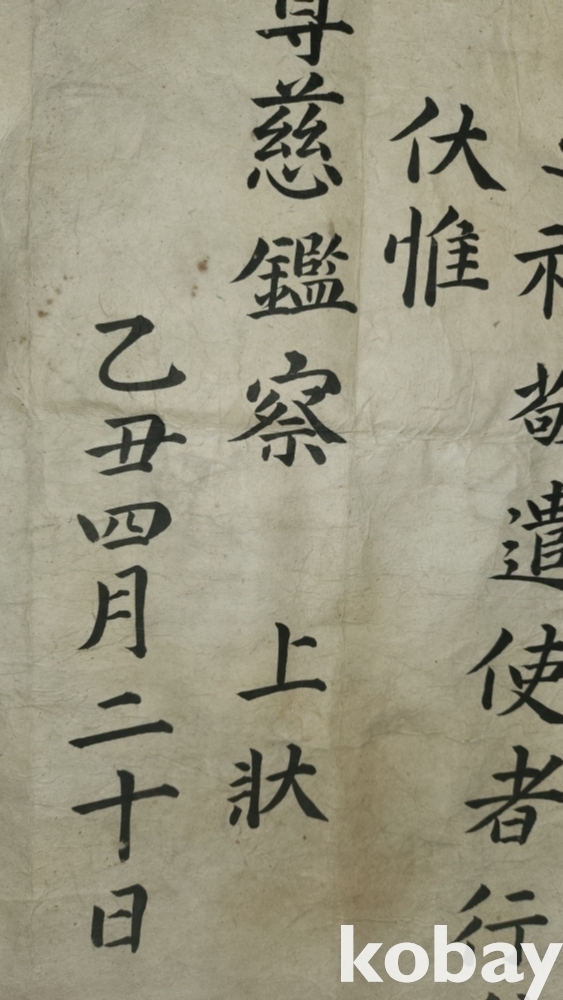 禮敬遣使者行
伏惟
尊慈鑑察 上狀
乙丑四月二十日
kobay